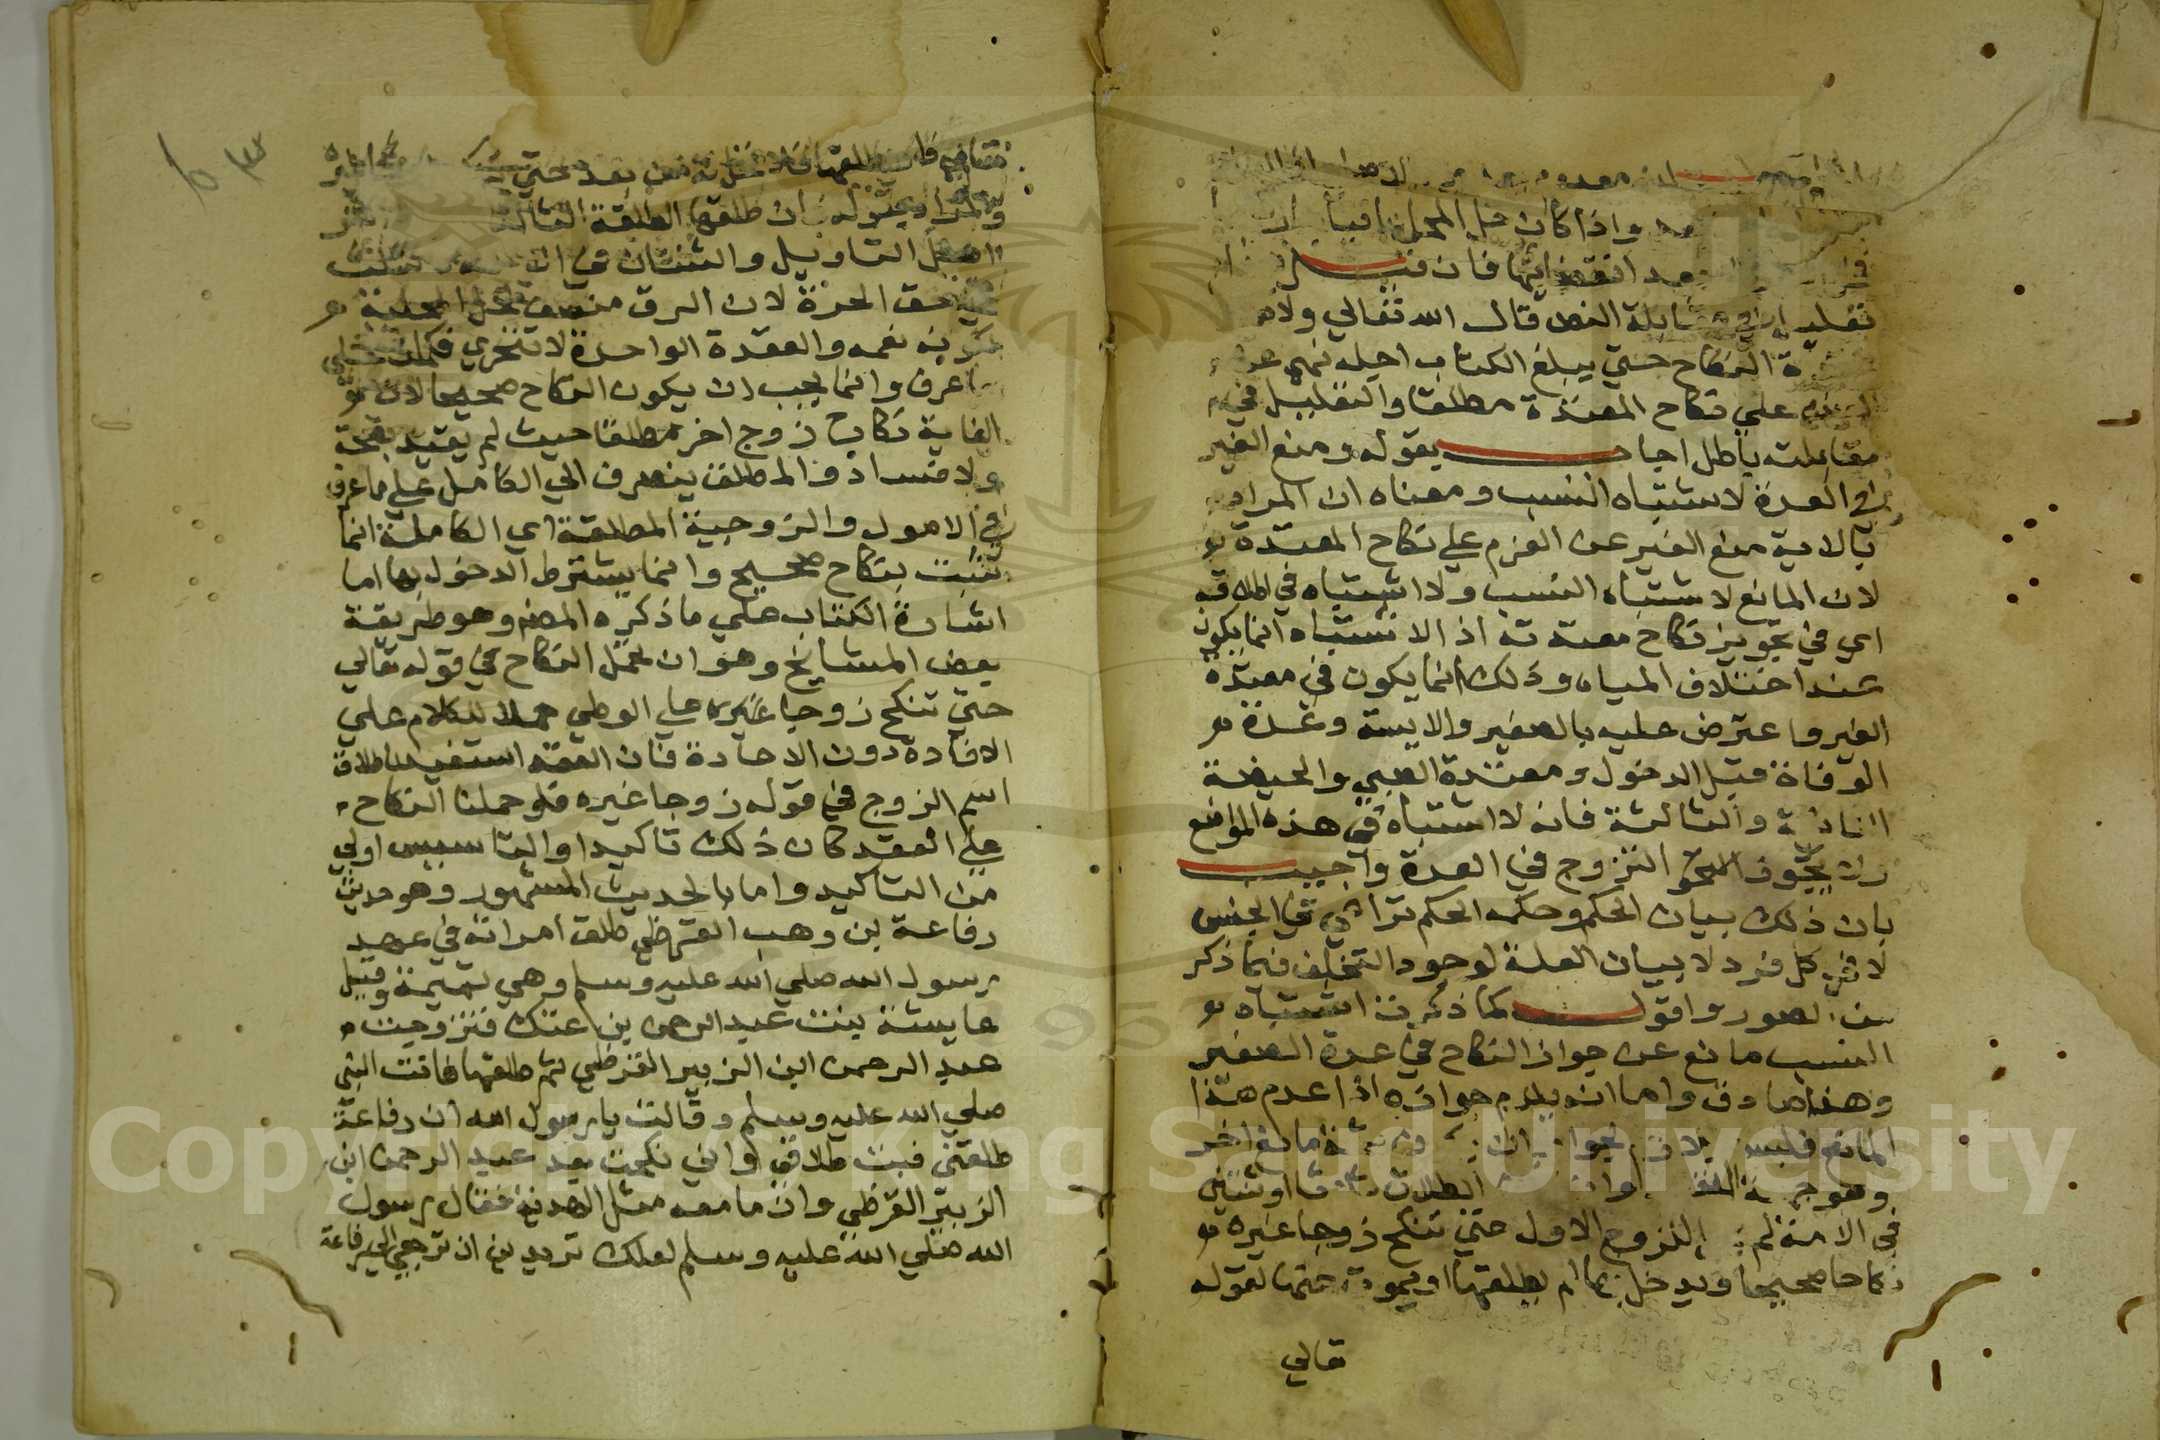 واذا كان حل المحل باقيا
بعد انقضائها فان قيل
تعليل في مقابلة النص قال الله تعالي ولا
ة النكاح حتي يبلغ الكتاب اجله نهي عن
علي نكاح المعتدة مطلقا والتعليل في
مقابلته باطل اجاب بقوله ومنع الغير
في العدة لاشتباه النسب ومعناه ان المراد
بالاية منع الغير عن العزم علي نكاح المعتدة
لان المانع لاشتباه النسب ولا اشتباه في اطلاقه
اي في تجويز نكاح معتدته اذ الاشتباه انما يكون
عند اختلاف المياه وذلك انما يكون في معتدة
الغير واعترض عليه بالصغير والايسة وعدة
الوفاة قبل الدخول ومعتدة الصبي والحيضة
الثانية والثالثة فانه لا اشتباه في هذه المواضع
ولا يجوز التزوج في العدة واجيب
بان ذلك بيان الحكم وحكمه الحكم تراعي في الجنس
لا في كل فرد لا بيان العلة لوجود التخلف فيما ذكر
من الصور واقول كما ذكرت اشتباه
النسب مانع عن جواز النكاح في عدة الصغير
وهذا صادق واما انه يلزم جوازه اذا عدم هذا
المانع فليس مانع اخر
وهو الطلاق ثلاثا او ثنتين
في الامة لم للزوج الاول حتي تنكح زوجا غيره
نكاحا صحيحا ويدخل بها ثم يطلقها او يموت عنها لقوله
تعالي
٦٣
تعالي فان طلقها فلا تحل له من بعد حتي تنكح زوجا غيره
والمراد بقوله فان طلقها الطلقة الثالثة
اهل التاويل والثنتان في الامة كالثلث
في حق الحرة لان الرق منصف لحل المحلية
لكونه نعمه والعقدة الواحدة لا تتجزي فكملت علي
ما عرف وانما يجب ان يكون النكاح صحيحا لان
الغاية نكاح زوج اخر مطلقا حيث لم يقيد بصحة
ولا فساد والمطلق ينصرف الي الكامل علي ما عرف
في الاصول والزوجية المطلقة اي الكاملة انما
تثبت بنكاح صحيح وانما يشترط الدخول بها اما
اشارة الكتاب علي ما ذكره المصنف وهو طريقة
بعض المشايخ وهو ان يحمل النكاح في قوله تعالي
حتي تنكح زوجا غيره علي الوطي حملا للكلام علي
الافادة دون الاعادة فان العقد استفيد باطلاق
اسم الزوج في قوله زوجا غيره فلو حملنا النكاح
علي العقد كان ذلك تاكيدا والتاسيس اولي
من التاكيد واما بالحديث المشهور وهو حديث
رفاعة بن وهب القرظي طلق امراته في عهد
رسول الله صلي الله عليه وسلم وهي تميمة وقيل
عايشة بنت عبد الرحمن بن عتك فتزوجت
عبد الرحمن ابن الزبير القرظي ثم طلقها فاتت النبي
صلي الله عليه وسلم وقالت يا رسول الله ان رفاعة
طلقني فبت طلاقي واني نكحت بعد عبد الرحمن ابن
الزبير القرظي وان ما معه مثل الهدبة فقال رسول
الله صلي الله عليه وسلم لعلك تريدين ان ترجعي الي رفاعة
Copyright © King Saud University